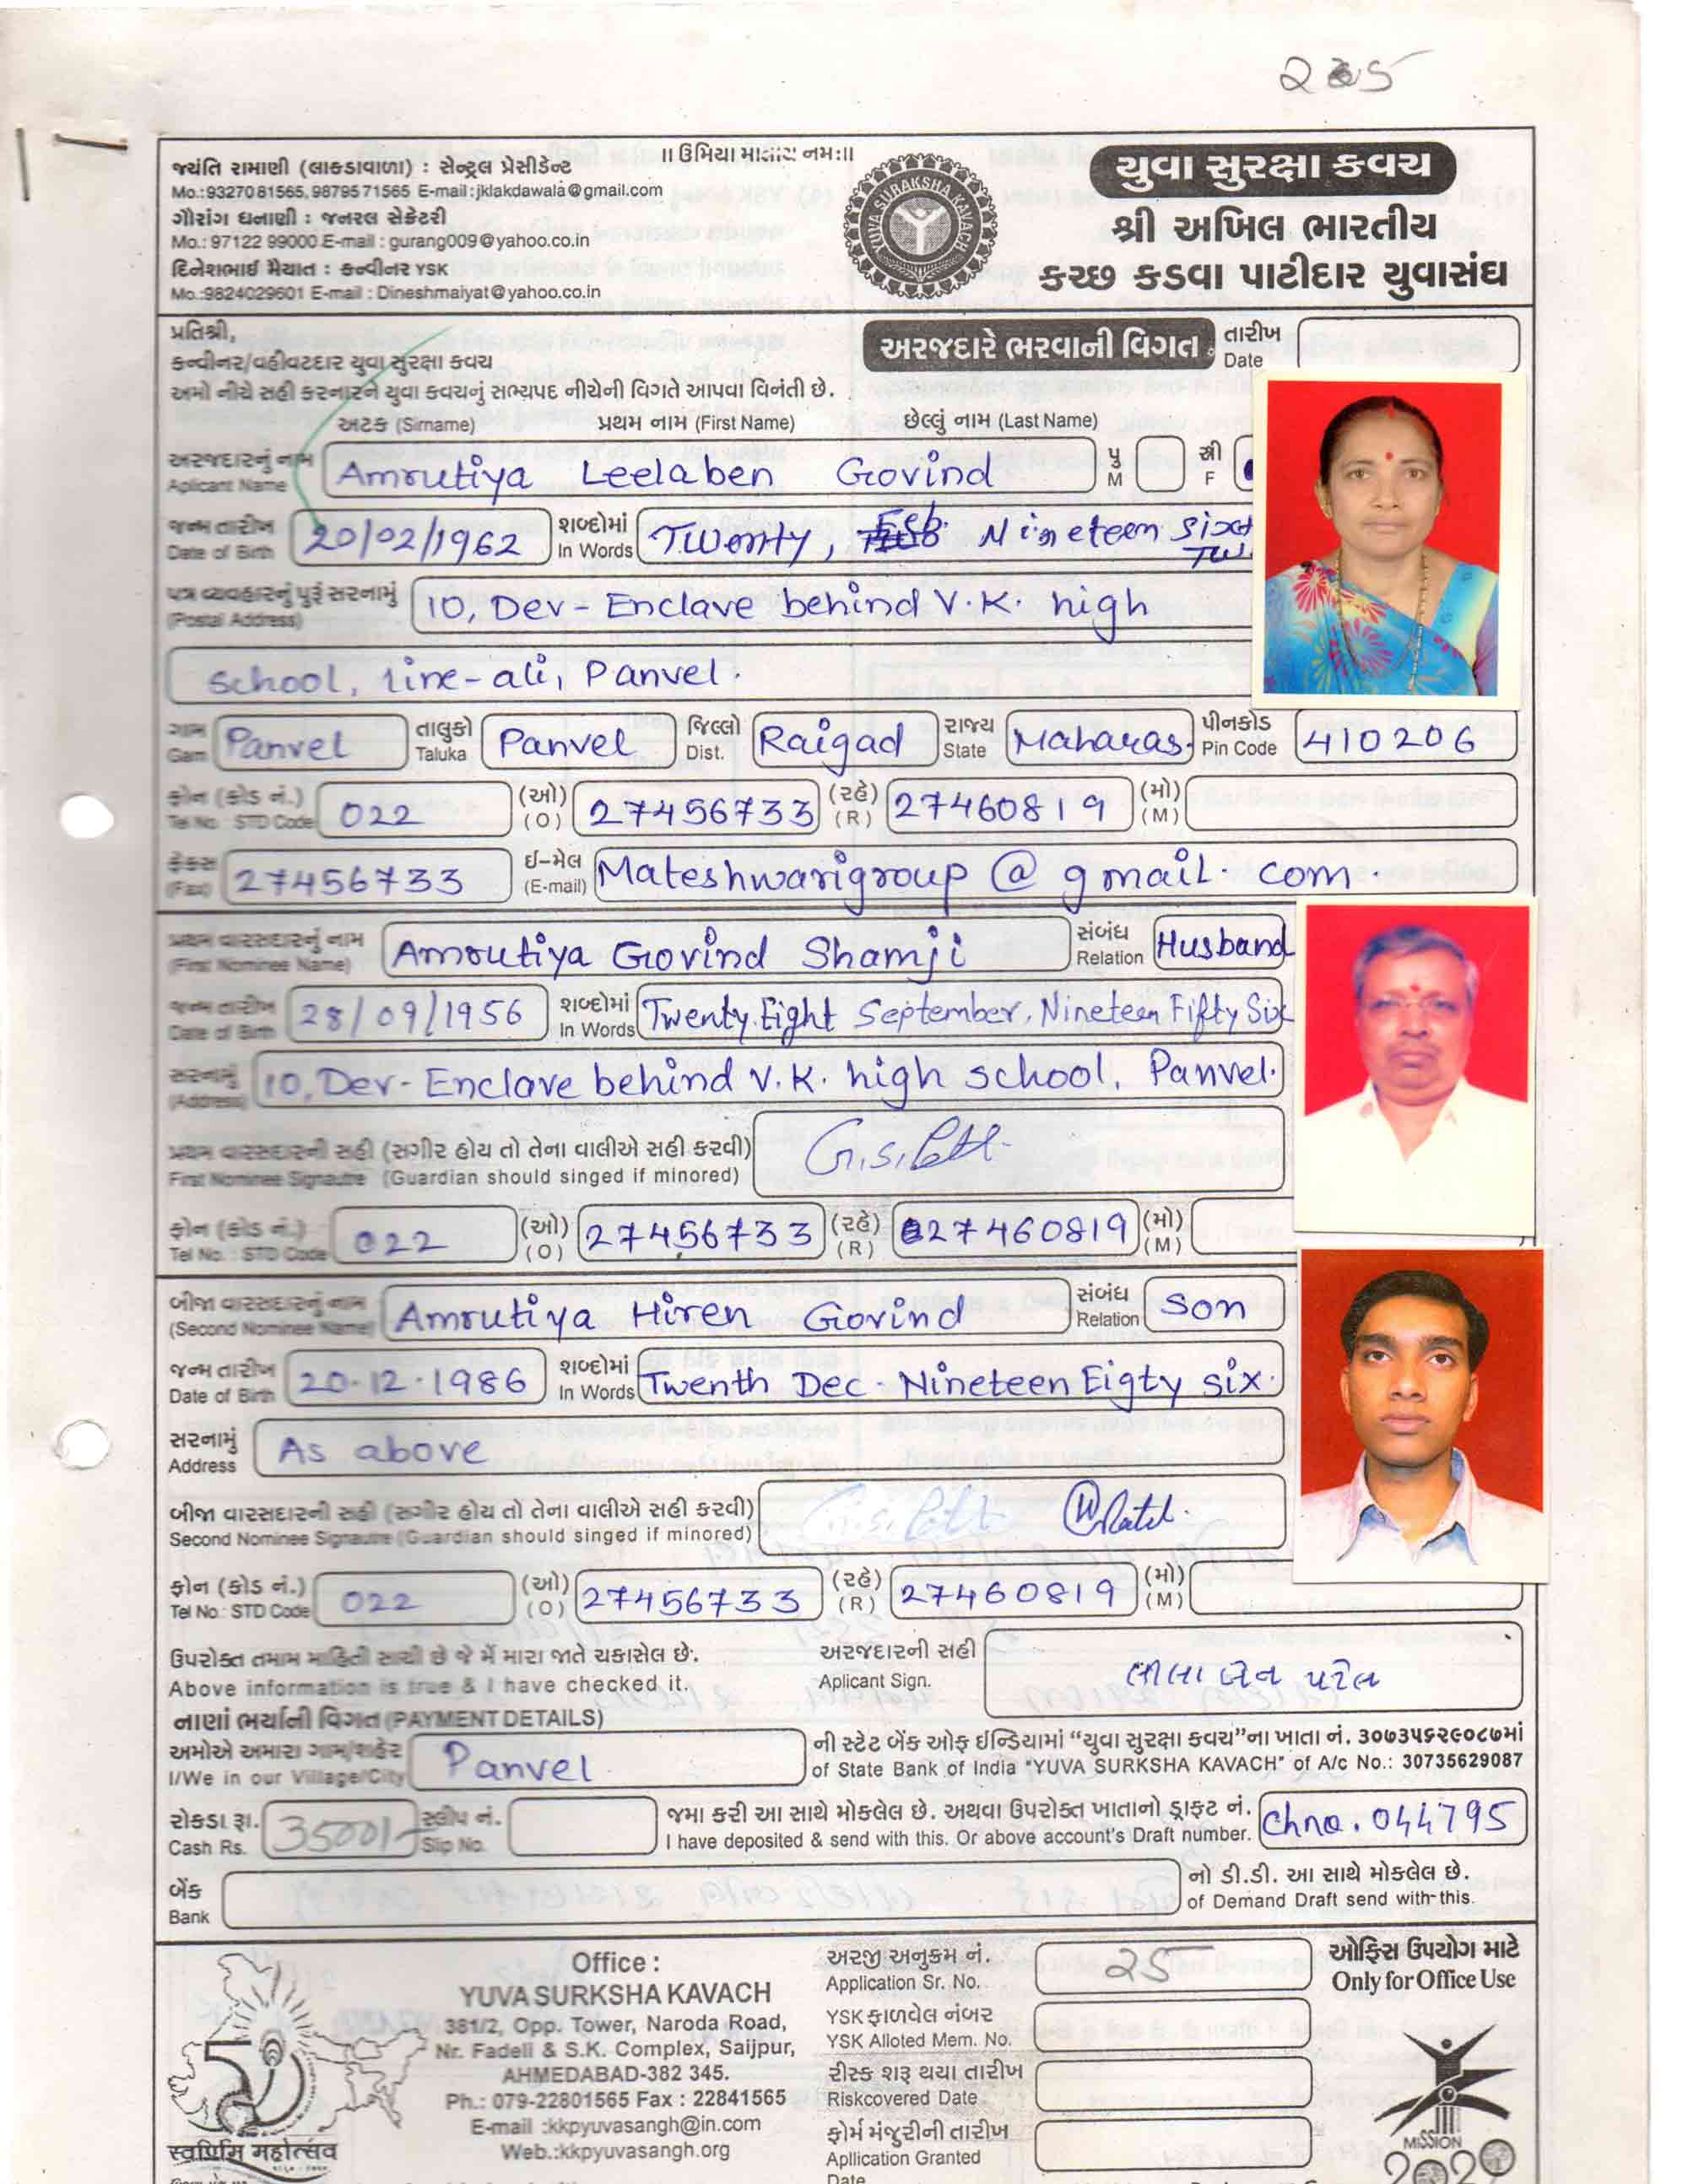 235
॥ ઉમિયા માતાય નમઃ॥
જયંતિ રામાણી (લાકડાવાળા) : સેન્ટ્રલ પ્રેસીડેન્ટ
Mo.:9327081565,9879571565 E-mail:jklakdawala@gmail.com
ગૌરાંગ ધનાણી : જનરલ સેક્રેટરી
Mo.: 97122 99000 E-mail : gurang009@yahoo.co.in
દિનેશભાઈ મૈયાત : કન્વીનર YSK
Mo.:9824029601 E-mail : Dineshmaiyat@yahoo.co.in
YUVA SURAKSHA KAVACH
યુવા સુરક્ષા કવચ
શ્રી અખિલ ભારતીય
કચ્છ કડવા પાટીદાર યુવાસંઘ
પ્રતિશ્રી,
કન્વીનર/વહીવટદાર યુવા સુરક્ષા કવચ
અમો નીચે સહી કરનારને યુવા કવચનું સભ્યપદ નીચેની વિગતે આપવા વિનંતી છે.
અરજદારે ભરવાની વિગત
તારીખ
Date
અટક (Sirname) પ્રથમ નામ (First Name) છેલ્લું નામ (Last Name)
અરજદારનું નામ
Aplicant Name Amrutiya Leelaben Govind પુ M સ્ત્રી F
જન્મ તારીખ
Date of Birth 20/02/1962 શબ્દોમાં In Words Twenty, Feb. Nineteen
પત્ર વ્યવહારનું પુરૂં સરનામું
(Postal Address) 10, Dev-Enclave behind V.K. high
school, line-ali, Panvel.
ગામ Gam Panvel તાલુકો Taluka Panvel જિલ્લો Dist. Raigad રાજ્ય State Maharas. પીનકોડ Pin Code 410206
ફોન (કોડ નં.)
Tel No. STD Code 022 (ઓ) (O) 27456733 (રહે) (R) 27460819 (મો) (M)
ફેક્સ (Fax) 27456733 ઈ-મેલ (E-mail) Mateshwarigroup @ gmail. com.
પ્રથમ વારસદારનું નામ
(First Nominee Name) Amrutiya Govind Shamji સંબંધ Relation Husband
જન્મ તારીખ
Date of Birth 28/09/1956 શબ્દોમાં In Words Twenty Eight September, Nineteen Fifty Six
સરનામું
(Address) 10, Dev-Enclave behind V.K. high school, Panvel.
પ્રથમ વારસદારની સહી (સગીર હોય તો તેના વાલીએ સહી કરવી)
First Nominee Signautre (Guardian should singed if minored)
ફોન (કોડ નં.)
Tel No. : STD Code 022 (ઓ) (O) 27456733 (રહે) (R) 27460819 (મો) (M)
બીજા વારસદારનું નામ
(Second Nominee Name) Amrutiya Hiren Govind સંબંધ Relation Son
જન્મ તારીખ
Date of Birth 20-12-1986 શબ્દોમાં In Words Twenth Dec - Nineteen Eigty six.
સરનામું
Address As above
બીજા વારસદારની સહી (સગીર હોય તો તેના વાલીએ સહી કરવી)
Second Nominee Signautre (Guardian should singed if minored)
ફોન (કોડ નં.)
Tel No. STD Code 022 (ઓ) (O) 27456733 (રહે) (R) 27460819 (મો) (M)
ઉપરોક્ત તમામ માહિતી સાચી છે જે મેં મારા જાતે ચકાસેલ છે.
Above information is true & I have checked it.
અરજદારની સહી
Aplicant Sign. લીલા બેન પટેલ
નાણાં ભર્યાની વિગત (PAYMENT DETAILS)
અમોએ અમારા ગામ/શહેર
I/We in our Village/City Panvel
ની સ્ટેટ બેંક ઓફ ઈન્ડિયામાં “યુવા સુરક્ષા કવચ”ના ખાતા નં. ૩૦૭૩૫૬૨૯૦૮૭માં
of State Bank of India "YUVA SURKSHA KAVACH" of A/c No.: 30735629087
રોકડા રૂા.
Cash Rs. 3500/- સ્લીપ નં. Slip No.
જમા કરી આ સાથે મોકલેલ છે. અથવા ઉપરોક્ત ખાતાનો ડ્રાફ્ટ નં.
I have deposited & send with this. Or above account's Draft number. Chno. 044795
બેંક
Bank
નો ડી.ડી. આ સાથે મોકલેલ છે.
of Demand Draft send with this.
Office :
YUVA SURKSHA KAVACH
381/2, Opp. Tower, Naroda Road,
Nr. Fadeli & S.K. Complex, Saijpur,
AHMEDABAD-382 345.
Ph.: 079-22801565 Fax : 22841565
E-mail :kkpyuvasangh@in.com
Web.:kkpyuvasangh.org
स्वर्णिम महोत्सव
અરજી અનુક્રમ નં.
Application Sr. No. 25
YSK ફાળવેલ નંબર
YSK Alloted Mem. No.
રીસ્ક શરૂ થયા તારીખ
Riskcovered Date
ફોર્મ મંજુરીની તારીખ
Apllication Granted
Date
ઓફિસ ઉપયોગ માટે
Only for Office Use
MISSION
2020